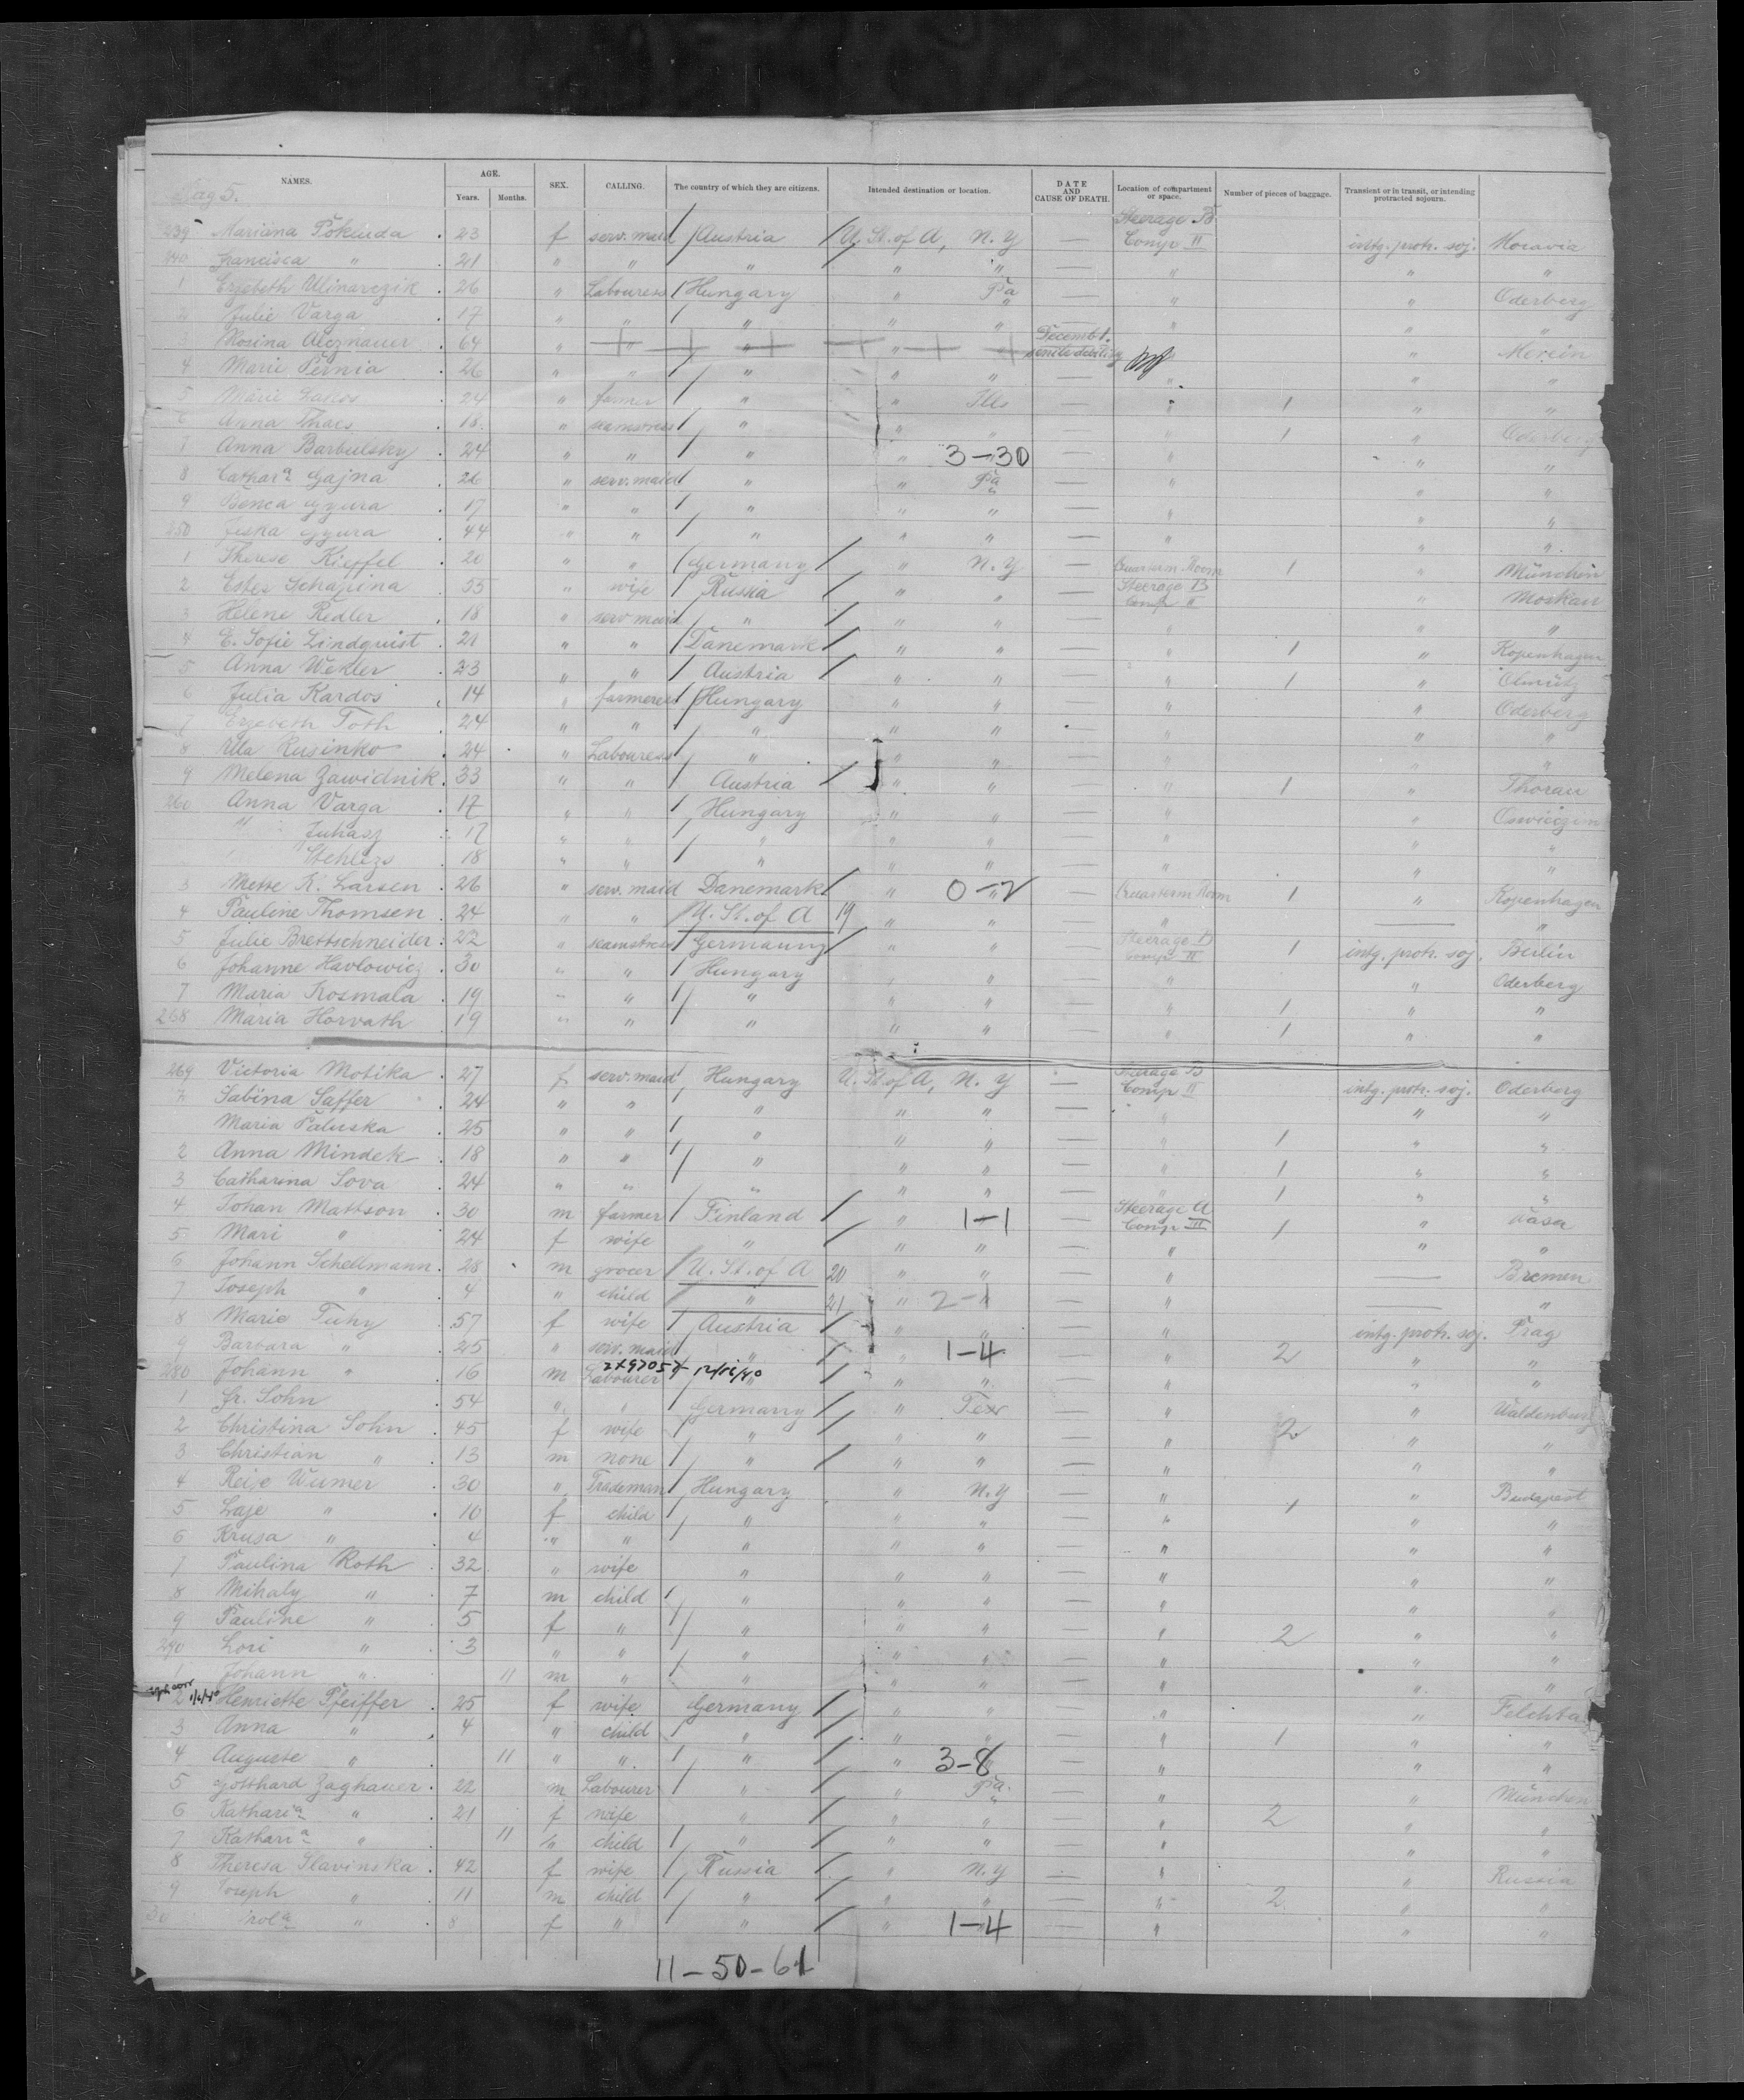 NAMES. AGE. Years. Months. SEX. CALLING. The country of which they are citizens. Intended destination or location. DATE AND CAUSE OF DEATH. Location of compartment or space. Number of pieces of baggage. Transient or in transit, or intending protracted sojourn.
239 Mariana 23 f serv. maid Austria U. St. of A, N.Y — Steerage B Comp II intg. protr. soj. Moravia
240 Francisca " 21 " " " " " — " " "
1 Erzebeth 26 " Labouress Hungary " Pa — " " Oderberg
2 Julie Varga 17 " " " " " — " " "
3 Rosina 64 " " " " " Decemb 1. " "
4 Marie 26 " " " " " — " " "
5 Marie 24 " farmer " " Ills — " 1 " "
6 Anna 18 " seamstress " " " — " 1 " Oderberg
7 Anna Barbulsky 24 " " " " 3-30 — " " "
8 Cathara Gajna 26 " serv. maid " " Pa — " " "
9 Gyura 17 " " " " " — " " "
250 Gyura 44 " " " " " — " " "
1 Therese Kieffel 20 " " Germany " N.Y — Room 1 " München
2 Ester Schapina 35 " wife Russia " " — Steerage B Comp II " Moskau
3 Helene Redler 18 " serv maid " " " " " "
4 E. Sofie Lindquist 21 " " Danemark " " — " 1 " Kopenhagen
5 Anna Wekler 23 " " Austria " " — " 1 " Olmütz
6 Julia Kardos 14 " farmeress Hungary " " — " " Oderberg
7 Erzebeth Toth 24 " " " " " — " " "
8 Rusinko 24 " Labouress " " " — " " "
9 Melena Zawidnik 33 " " Austria " " — " 1 "
260 Anna Varga 17 " " Hungary " " — " "
" Juhasz 17 " " " " " — " " "
18 " " " " " — " " "
3 Mette K. Larsen 26 " serv. maid Danemark " 0-2 — Room 1 " Kopenhagen
4 Pauline Thomsen 24 " " U. St. of A 19 " " — " — "
5 Julie Brettschneider 22 " seamstress Germany " " Steerage B Comp II 1 intg. protr. soj. Berlin
6 Johanne Havlowicz 30 " " Hungary " " — " " Oderberg
7 Maria Kosmala 19 " " " " " — " 1 " "
268 Maria Horvath 19 " " " " " — " 1 " "
269 Victoria Motika 27 f serv. maid Hungary U. St. of A, N.Y — Steerage B Comp II intg. protr. soj. Oderberg
Sabina Saffer 24 " " " " " — " " "
Maria Paluska 25 " " " " " — " 1 " "
2 Anna Mindek 18 " " " " " — " 1 " "
3 Catharina Sova 24 " " " " " — " 1 " "
4 Johan Mattson 30 m farmer Finland " 1-1 — Steerage A Comp III 1 " Vasa
5 Mari " 24 f wife " " " — " " "
6 Johann Schellmann 28 m grocer U. St. of A 20 " " — " — Bremen
7 Joseph " 4 " child " 21 " 2-1 — " — "
8 Marie Tuhy 57 f wife Austria " " — " intg. protr. soj. Prag
9 Barbara " 25 " serv. maid " " 1-4 — " 2 " "
280 Johann " 16 m Labourer " " " — " " "
1 Fr. Sohn 54 " " Germany " Tex — " " Waldenburg
2 Christina Sohn 45 f wife " " " — " 2 " "
3 Christian " 13 m none " " " — " " "
4 Reise Wumer 30 " Trademan Hungary " N.Y — " 1 " Budapest
5 Laje " 10 f child " " " — " " "
6 Krusa " 4 " " " " " — " " "
7 Paulina Roth 32 " wife " " " — " " "
8 Mihaly " 7 m child " " " — " " "
9 Pauline " 5 f " " " " — " 2 " "
290 Lori " 3 " " " " " — " " "
1 Johann " 11 m " " " " — " " "
2 Henriette Pfeiffer 25 f wife Germany " " — " "
3 Anna " 4 " child " " " — " 1 " "
4 Auguste " 11 " " " " 3-8 — " " "
5 Gotthard Zaghauer 22 m Labourer " " Pa. — " " München
6 Katharia " 21 f wife " " " — " 2 " "
7 Katharia " 11 " child " " " — " " "
8 Theresa Slavinska 42 f wife Russia " N.Y — " " Russia
9 Joseph " 11 m child " " " — " 2 " "
" 8 f " " " 1-4 — " " "
11-50-61